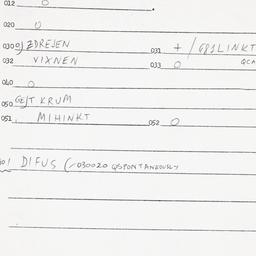 012 0
020 0
030 0) ZDREJEN 031 + / GP1LINKT
032 VIXNEN 033 0 QCA
040 0
050 GEST KRUM
051. MIHINKT 052 0
01 DIFUS (/030020 QSPONTANEOUSLY